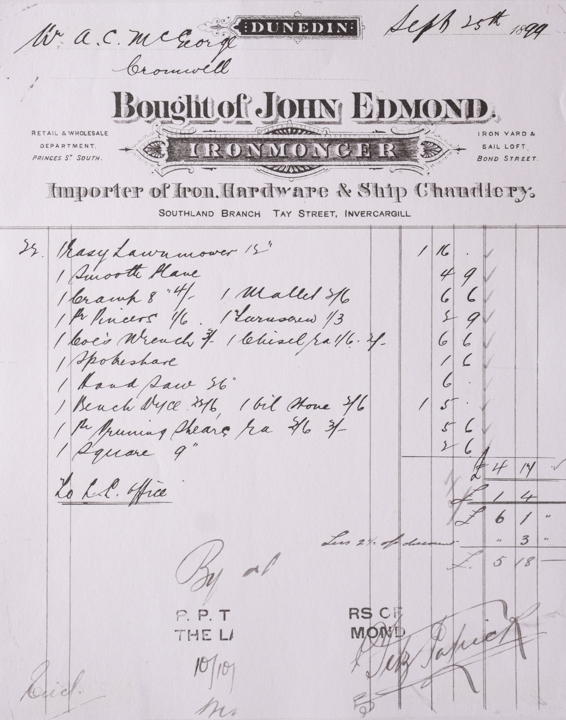 DUNEDIN:
Sept 25th 1899
Mr A. C. McGeorge
Cromwell
Bought of JOHN EDMOND.
RETAIL & WHOLESALE
DEPARTMENT.
PRINCES ST SOUTH.
IRONMONGER
IRON YARD &
SAIL LOFT.
BOND STREET.
Importer of Iron, Hardware & Ship Chandlery.
SOUTHLAND BRANCH TAY STREET, INVERCARGILL
1 Easy Lawnmower 12" 1 16 .
1 Smooth Plane 4 9
1 Cramp 8" 4/- 1 Mallet 2/6 6 6
1 Pr Pincers 1/6 1 Turnscrew 1/3 2 9
1 Coe's Wrench 1 Chisel 6 6
1 Spokeshave 1 6
1 Hand Saw 26" 6 .
1 Bench Vyce 1 Oil Stone 2/6 1 5 .
1 Pr Pruning Shears 5 6
1 Square 9" 2 6
£ 4 17
To L.C. office
£ 1 4
£ 6 1 "
Less discount " 3 "
£ 5 18 -
By
P. P. T RS OF
THE LA MOND
10/10/
Fitzpatrick